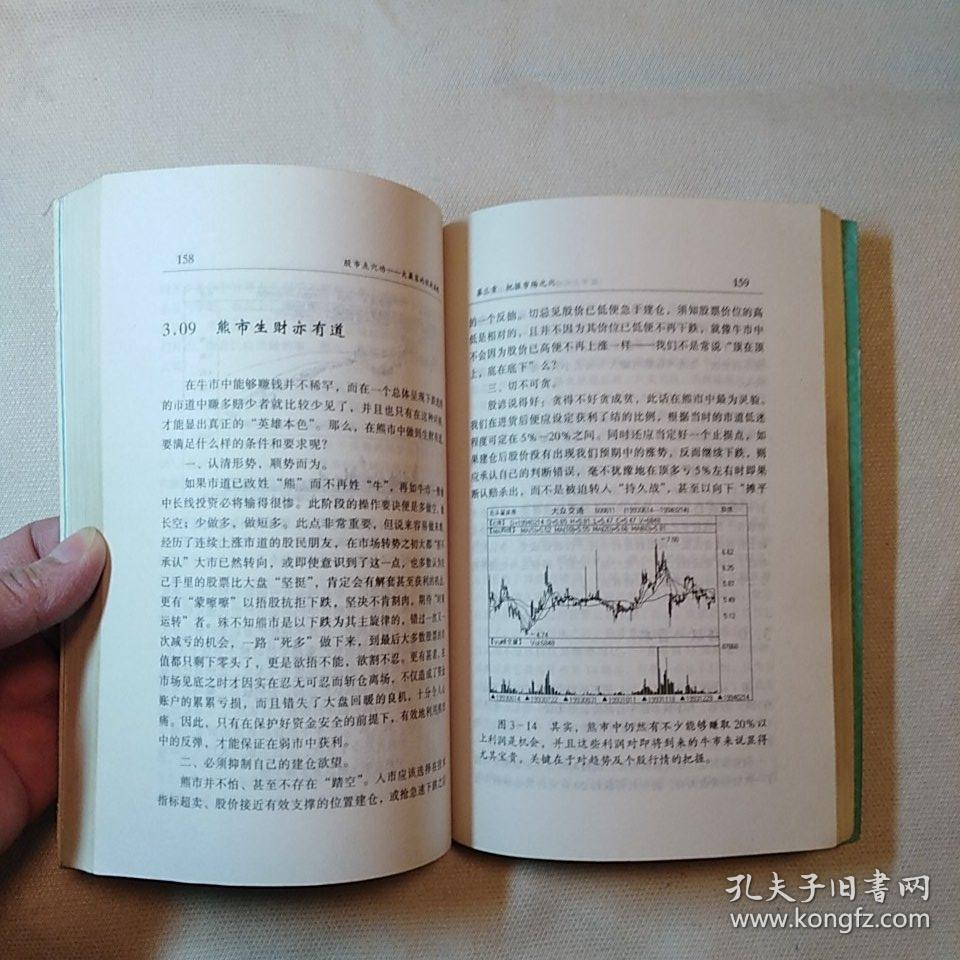 158
股市点穴功——大赢家的
3.09 熊市生财亦有道
在牛市中能够赚钱并不稀罕，而在一个总体呈现下跌
的市道中赚多赔少者就比较少见了，并且也只有在这种时候
才能显出真正的“英雄本色”。那么，在熊市中做到生财有道
要满足什么样的条件和要求呢？
一、认清形势，顺势而为。
如果市道已改姓“熊”而不再姓“牛”，再如牛市一
中长线投资必将输得很惨。此阶段的操作要诀便是多做空，
长空；少做多，做短多。此点非常重要，但说来容易做来
经历了连续上涨市道的股民朋友，在市场转势之初大都
承认”大市已然转向，或即使意识到了这一点，也多数认为
己手里的股票比大盘“坚挺”，肯定会有解套甚至获利的机
更有“蒙嚓嚓”以捂股抗拒下跌，坚决不肯割肉，期待
运转”者。殊不知熊市是以下跌为其主旋律的，错过一次又一
次减亏的机会，一路“死多”做下来，到最后大多数股票的
值都只剩下零头了，更是欲捂不能，欲割不忍。更有甚者，在
市场见底之时才因实在忍无可忍而斩仓离场，不仅造成了资金
账户的累累亏损，而且错失了大盘回暖的良机，十分令人
痛。因此，只有在保护好资金安全的前提下，有效地利用
中的反弹，才能保证在弱市中获利。
二、必须抑制自己的建仓欲望。
熊市并不怕、甚至不存在“踏空”。入市应该选择在技术
指标超卖、股价接近有效支撑的位置建仓，或抢急速下跌之
第三章：把握市场之穴
159
的一个反抽。切忌见股价已低便急于建仓，须知股票价位的高
低是相对的，且并不因为其价位已低便不再下跌，就像牛市中
不会因为股价已高便不再上涨一样——我们不是常说“顶在顶
上，底在底下”么？
三、切不可贪。
股谚说得好：贪得不好贪成贫，此话在熊市中最为灵验。
我们在进货后便应设定获利了结的比例，根据当时的市道低迷
程度可定在5%－20%之间。同时还应当定好一个止损点，如
果建仓后股价没有出现我们预期中的涨势，反而继续下跌，则
应承认自己的判断错误，毫不犹豫地在顶多亏5%左右时即果
断认赔杀出，而不是被迫转入“持久战”，甚至以向下“摊平
大众交通 600611 (19930614—19940214)
7.00
6.62
6.25
5.87
5.49
5.12
4.74
图3－14 其实，熊市中仍然有不少能够赚取20%以
上利润是机会，并且这些利润对即将到来的牛市来说显得
尤其宝贵，关键在于对趋势及个股行情的把握。
孔夫子旧書网
www.kongfz.com